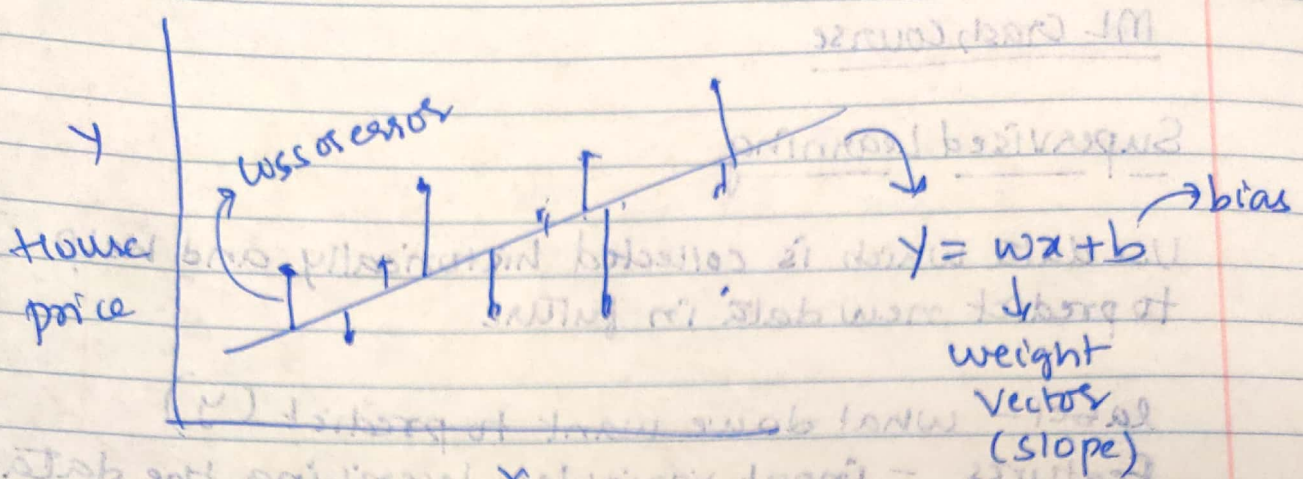 Y
House
price
loss or error
y = wx + b
bias
weight
vector
(slope)
x